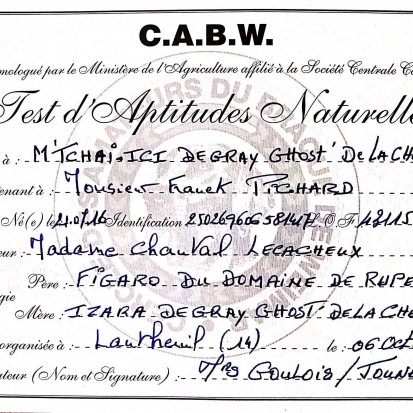 C.A.B.W.
mologué par le Ministère de l'Agriculture affilié à la Société Centrale C
Test d'Aptitudes Naturelle
à : M'TCHAÏ-ICI DEGRAY GHOST' DE LA CH
tenant à : Monsieur Franck PICHARD
Né(e) le 21.07.16 Identification 250269606 L O F
eur : Madame Chantal LECACHEUX
Père : FIGARO DU DOMAINE DE RUPE
gie
Mère : IZARA DEGRAY GHOST' DE LA CHE
organisée à : Lantheuil (14) le : 06 OCT
ateur (Nom et Signature) : GOULOIS /